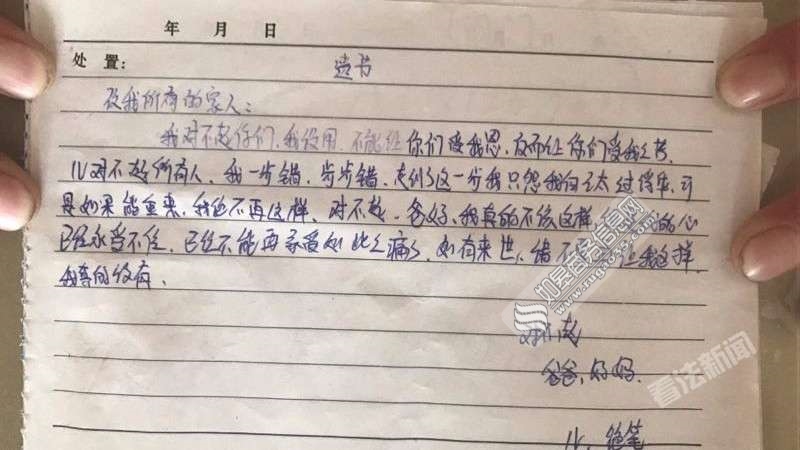 年 月 日
处 置: 遗书
及我所有的家人:
我对不起你们,我没用,不能让你们受我恩,反而让你们受我之害,
对不起所有人,我一步错,步步错,走到了这一步我只怨我自己太过 可
是如果能重来,我绝不再这样,对不起,爸妈,我真的不该这样, 的心
已经承受不住,已经不能再承受如此之痛了,如有来世, 不 让我这样,
我真的没有,
对不起
爸爸,妈妈.
绝笔
如皋信息网
看法新闻